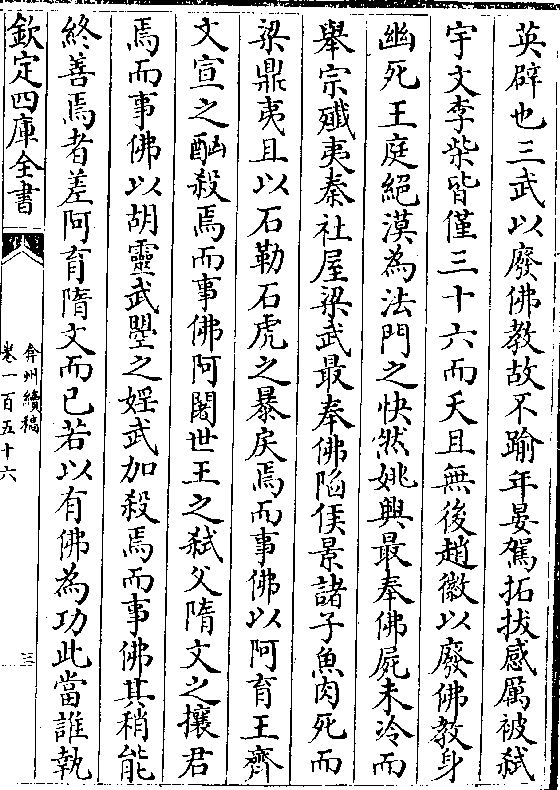 英辟也三武以廢佛教故不踰年晏駕拓拔感厲被弑
宇文李柴皆僅三十六而夭且無後趙徽以廢佛教身
幽死王庭絕漠為法門之快然姚興最奉佛屍未冷而
舉宗殲夷秦社屋梁武最奉佛陷侯景諸子魚肉死而
梁鼎夷且以石勒石虎之暴戾焉而事佛以阿育王齊
文宣之酗殺焉而事佛阿闍世王之弑父隋文之攘君
焉而事佛以胡靈武曌之婬武加殺焉而事佛其稍能
終善焉者差阿育隋文而已若以有佛為功此當誰執
欽定四庫全書
弇州續稿
卷一百五十六
三